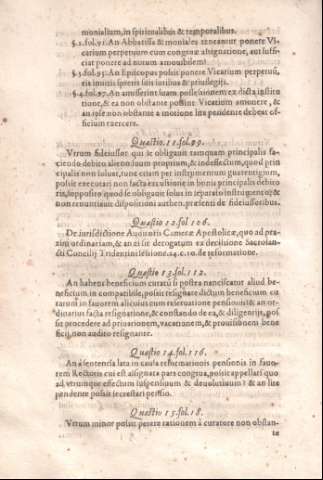 monialium, in spiritalibus & temporalibus.
§.2.fol.91. An Abbatissa & moniales teneantur ponere Vi-
carium perpetuum cum congruæ assignatione, aut suffi-
ciat ponere ad nutum amouibilem?
§.3.fol.95. An Episcopus possit ponere Vicarium perpetuũ,
eis inuitis spretis suis iuribus & priuilegijs.
§.4.fol.97. An amiserint suam possessionem ex dicta institu
tione, & ea non obstante possint Vicarium amouere, &
an ipse non obstante a motione lite pendente debeat of-
ficium exercere.
Quæstio.11.fol.99.
Vtrum fideiussor qui se obligauit tamquam principalis fa-
ciendo debitũ alienũ suum proprium, & indefectum, quod prin
cipalis non soluat, tunc etiam per instrumentum guarentigium,
possit executari non facta excussione in bonis principalis debito
ris, supposito quod se obligauit solus in separato instrumento; &
non renuntiauit dispositioni authen. præsenti de fideiussoribus.
Quæstio 12.fol.106.
De iurisdictione Auditoris Cameræ Apostolicæ, quo ad præ
xim ordinariam, & an ei sit derogatum ex decisione Sacrosan-
cti Concilij Tridentini sessione.24.c.10. de reformatione.
Quæstio 13.fol.112.
An habens beneficium curatũ si postea nanciscatur aliud be-
neficium incompatibile, possit resignare dictum beneficium cu
ratum in fauorem alicuius cum reseruatione pensionis: & an or-
dinarius facta resignatione, & constando de ea, & diligentijs, pos
sit procedere ad priuationem, vacationem, & prouisionem bene
ficij, non audito resignante.
Quæstio 14.fol.116.
An a sententia lata in causa reseruationis pensionis in fauo-
rem Rectoris cui est assignata pars congrua, possit appellari quo
ad vtrumque effectum suspensiuum & deuolutiuum? & an lite
pendente possit sequestrari pensio.
Quæstio 15.fol.18.
Vtrum minor possit petere rationem à curatore non obstan-
te